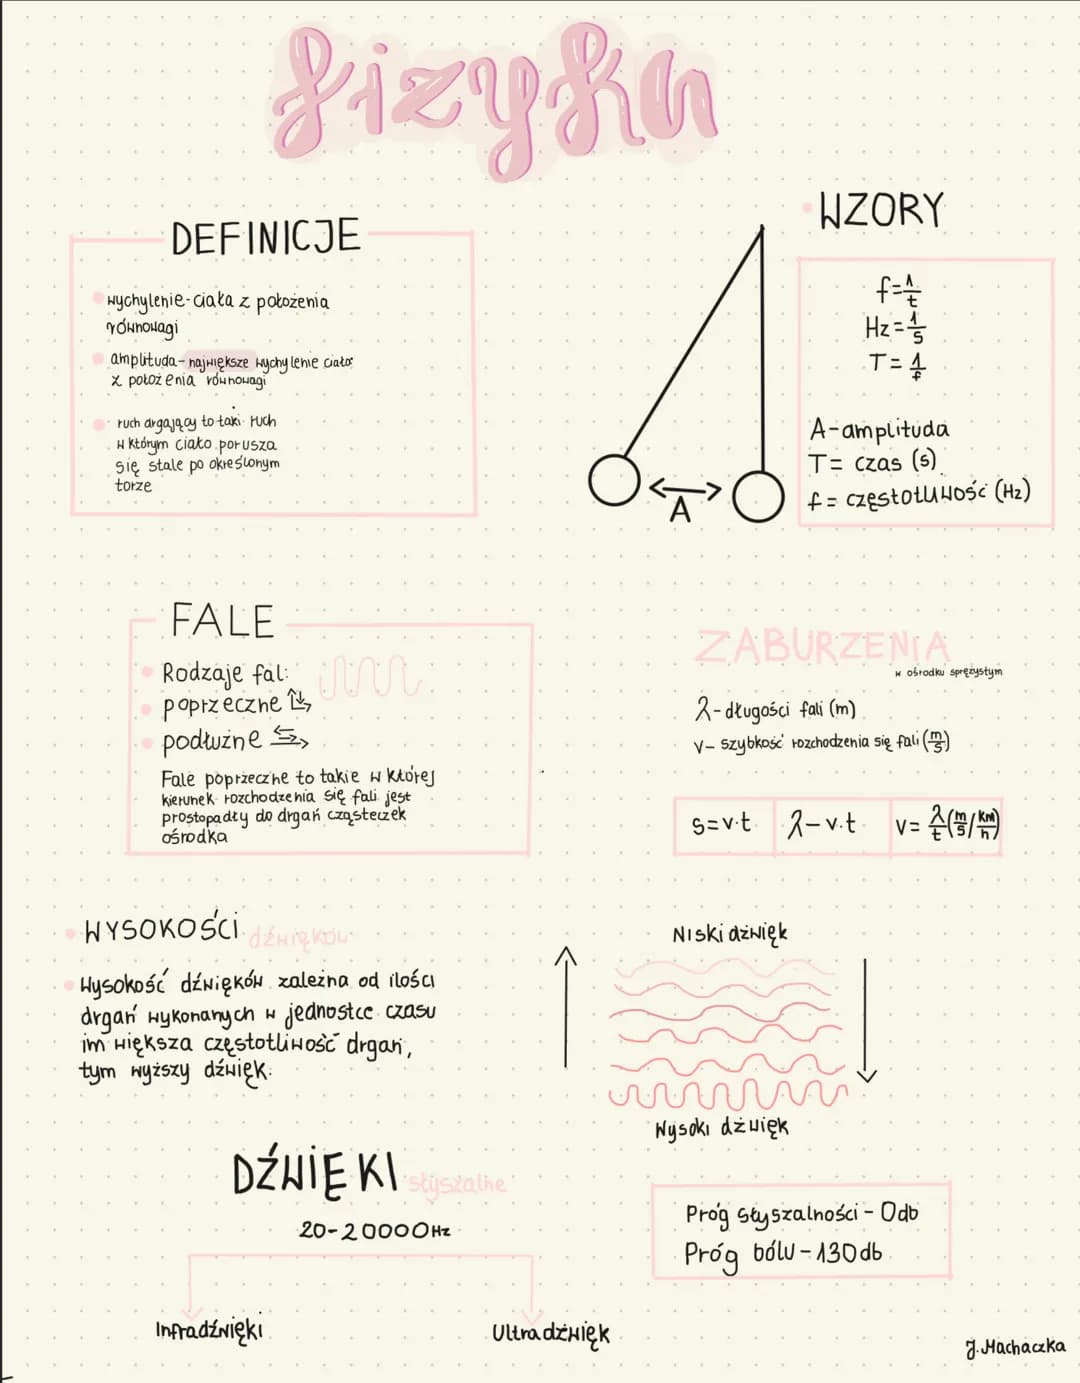 fizyka
DEFINICJE
wychylenie-ciała z położenia
równowagi
amplituda-największe wychylenie ciała
z położenia równowagi
ruch drgający to taki ruch
w którym ciało porusza
się stale po określonym
torze
A
WZORY
f=1/t
Hz=1/s
T=1/f
A-amplituda
T= czas (s)
f= częstotliwość (Hz)
FALE
Rodzaje fal:
poprzeczne
podłużne
Fale poprzeczne to takie w której
kierunek rozchodzenia się fali jest
prostopadły do drgań cząsteczek
ośrodka
ZABURZENIA
w ośrodku sprężystym
λ-długości fali (m)
v-szybkość rozchodzenia się fali (m/s)
s=v·t λ-v.t v= λ/t (m/s / km/h)
WYSOKOŚCI dźwięków
Wysokość dźwięków zależna od ilości
drgań wykonanych w jednostce czasu
im większa częstotliwość drgań,
tym wyższy dźwięk.
Niski dźwięk
Wysoki dźwięk
DŹWIĘKI słyszalne
20-20000Hz
Infradźwięki
Ultradźwięk
Próg słyszalności - 0db
Próg bólu - 130db
J.Machaczka